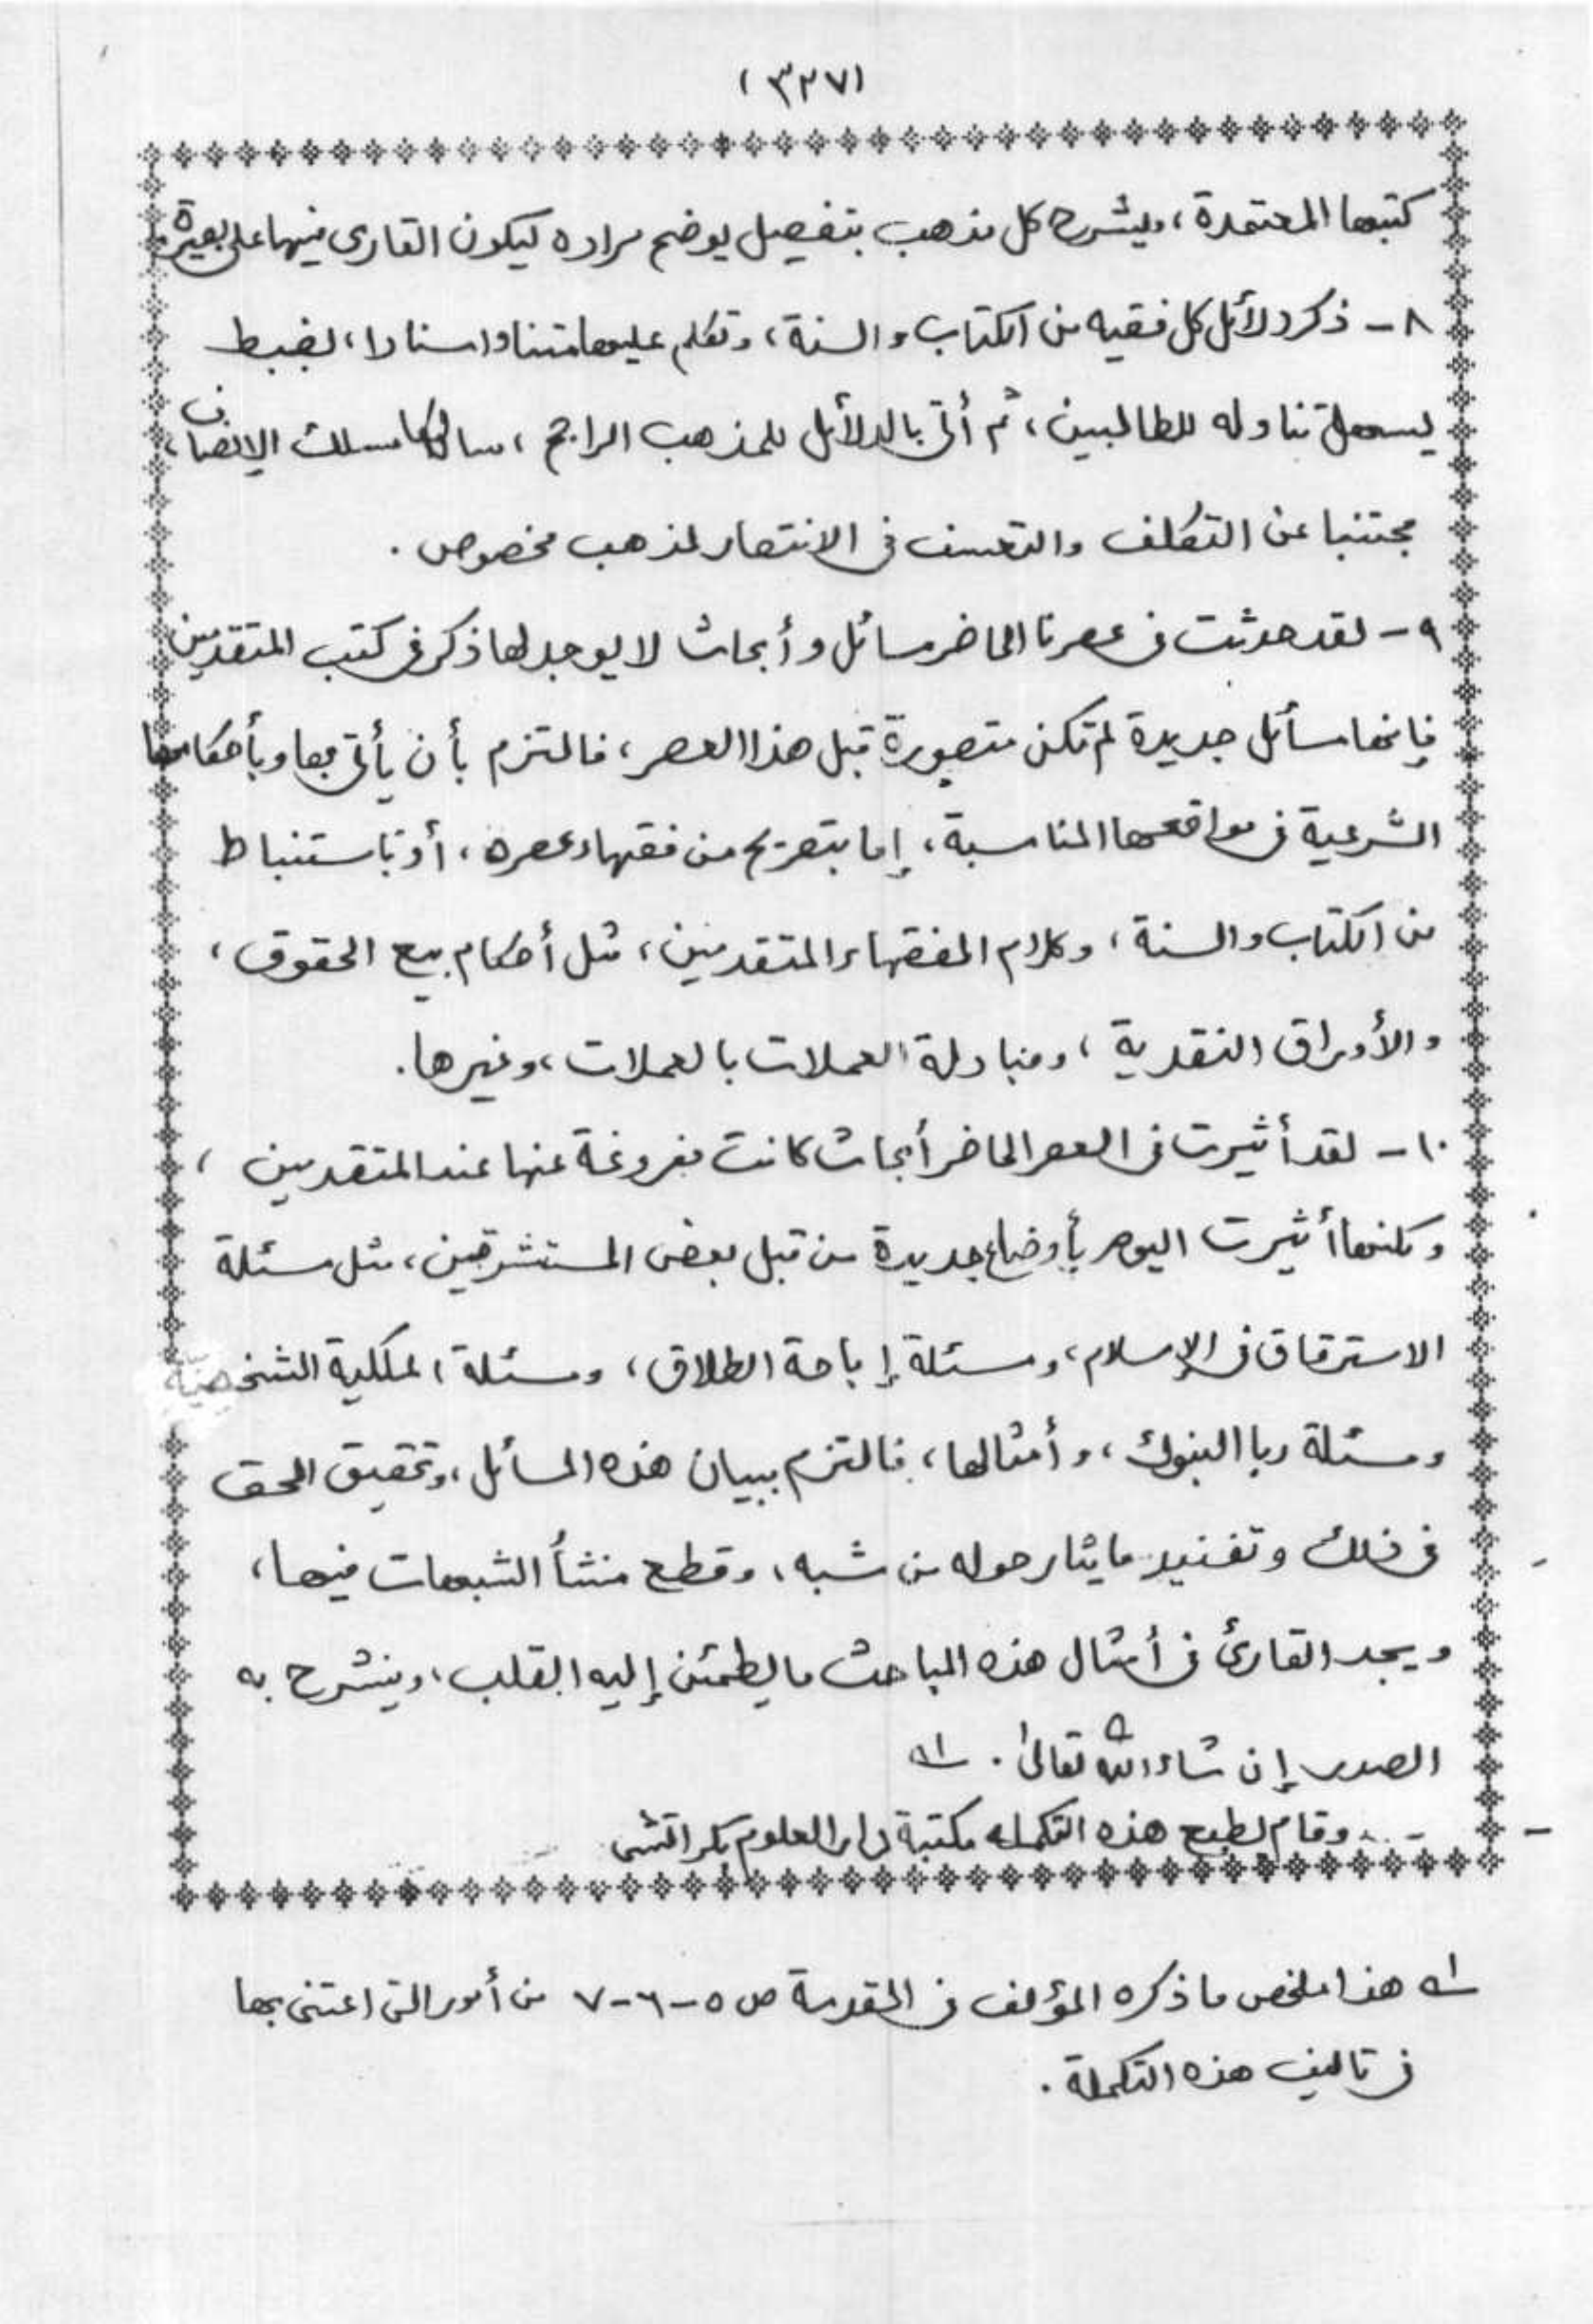 (٣٢٧)
كتبها المعتمدة، ويشرح كل مذهب بتفصيل يوضح مراده ليكون القارى فيها على بصيرة،
٨- ذكر دلائل كل فقيه من الكتاب والسنة، وتكلم عليها متنا واسنادا، بضبط
يسهل تناوله للطالبين، ثم أتى بالدلائل للمذهب الراجح، سالكا مسلك الانصاف،
مجتنبا عن التكلف والتعسف فى الانتصار لمذهب مخصوص.
٩- لقد حدثت فى عصرنا الحاضر مسائل وأبحاث لا يوجد لها ذكر فى كتب المتقدمين
فإنها مسائل جديدة لم تكن متصورة قبل هذا العصر، فالتزم بأن يأتى بها وبأحكامها
الشرعية فى مواقعها المناسبة، إما بتصريح من فقهاء عصره، أو باستنباط
من الكتاب والسنة، وكلام الفقهاء المتقدمين، مثل أحكام بيع الحقوق،
والأوراق النقدية، ومبادلة العملات بالعملات، وغيرها.
١٠- لقد أثيرت فى العصر الحاضر أبحاث كانت مفروغة عنها عند المتقدمين،
ولكنها أثيرت اليوم بأوضاع جديدة من قبل بعض المستشرقين، مثل مسئلة
الاسترقاق فى الإسلام، ومسئلة إباحة الطلاق، ومسئلة الملكية الشخصية
ومسئلة ربا البنوك، وأمثالها، فالتزم ببيان هذه المسائل، وتحقيق الحق
فى ذلك وتفنيد ما يثار حوله من شبه، وقطع منشأ الشبهات فيها،
ويجد القارئ فى أمثال هذه المباحث ما يطمئن إليه القلب، وينشرح به
الصدر إن شاء الله تعالىٰ. ١ه
وقام بطبع هذه التكمله مكتبة دار العلوم بكراتشى
١ه هذا ملخص ما ذكره المؤلف فى المقدمة ص ٥-٦-٧ من أمور التى اعتنى بها
فى تاليف هذه التكملة.